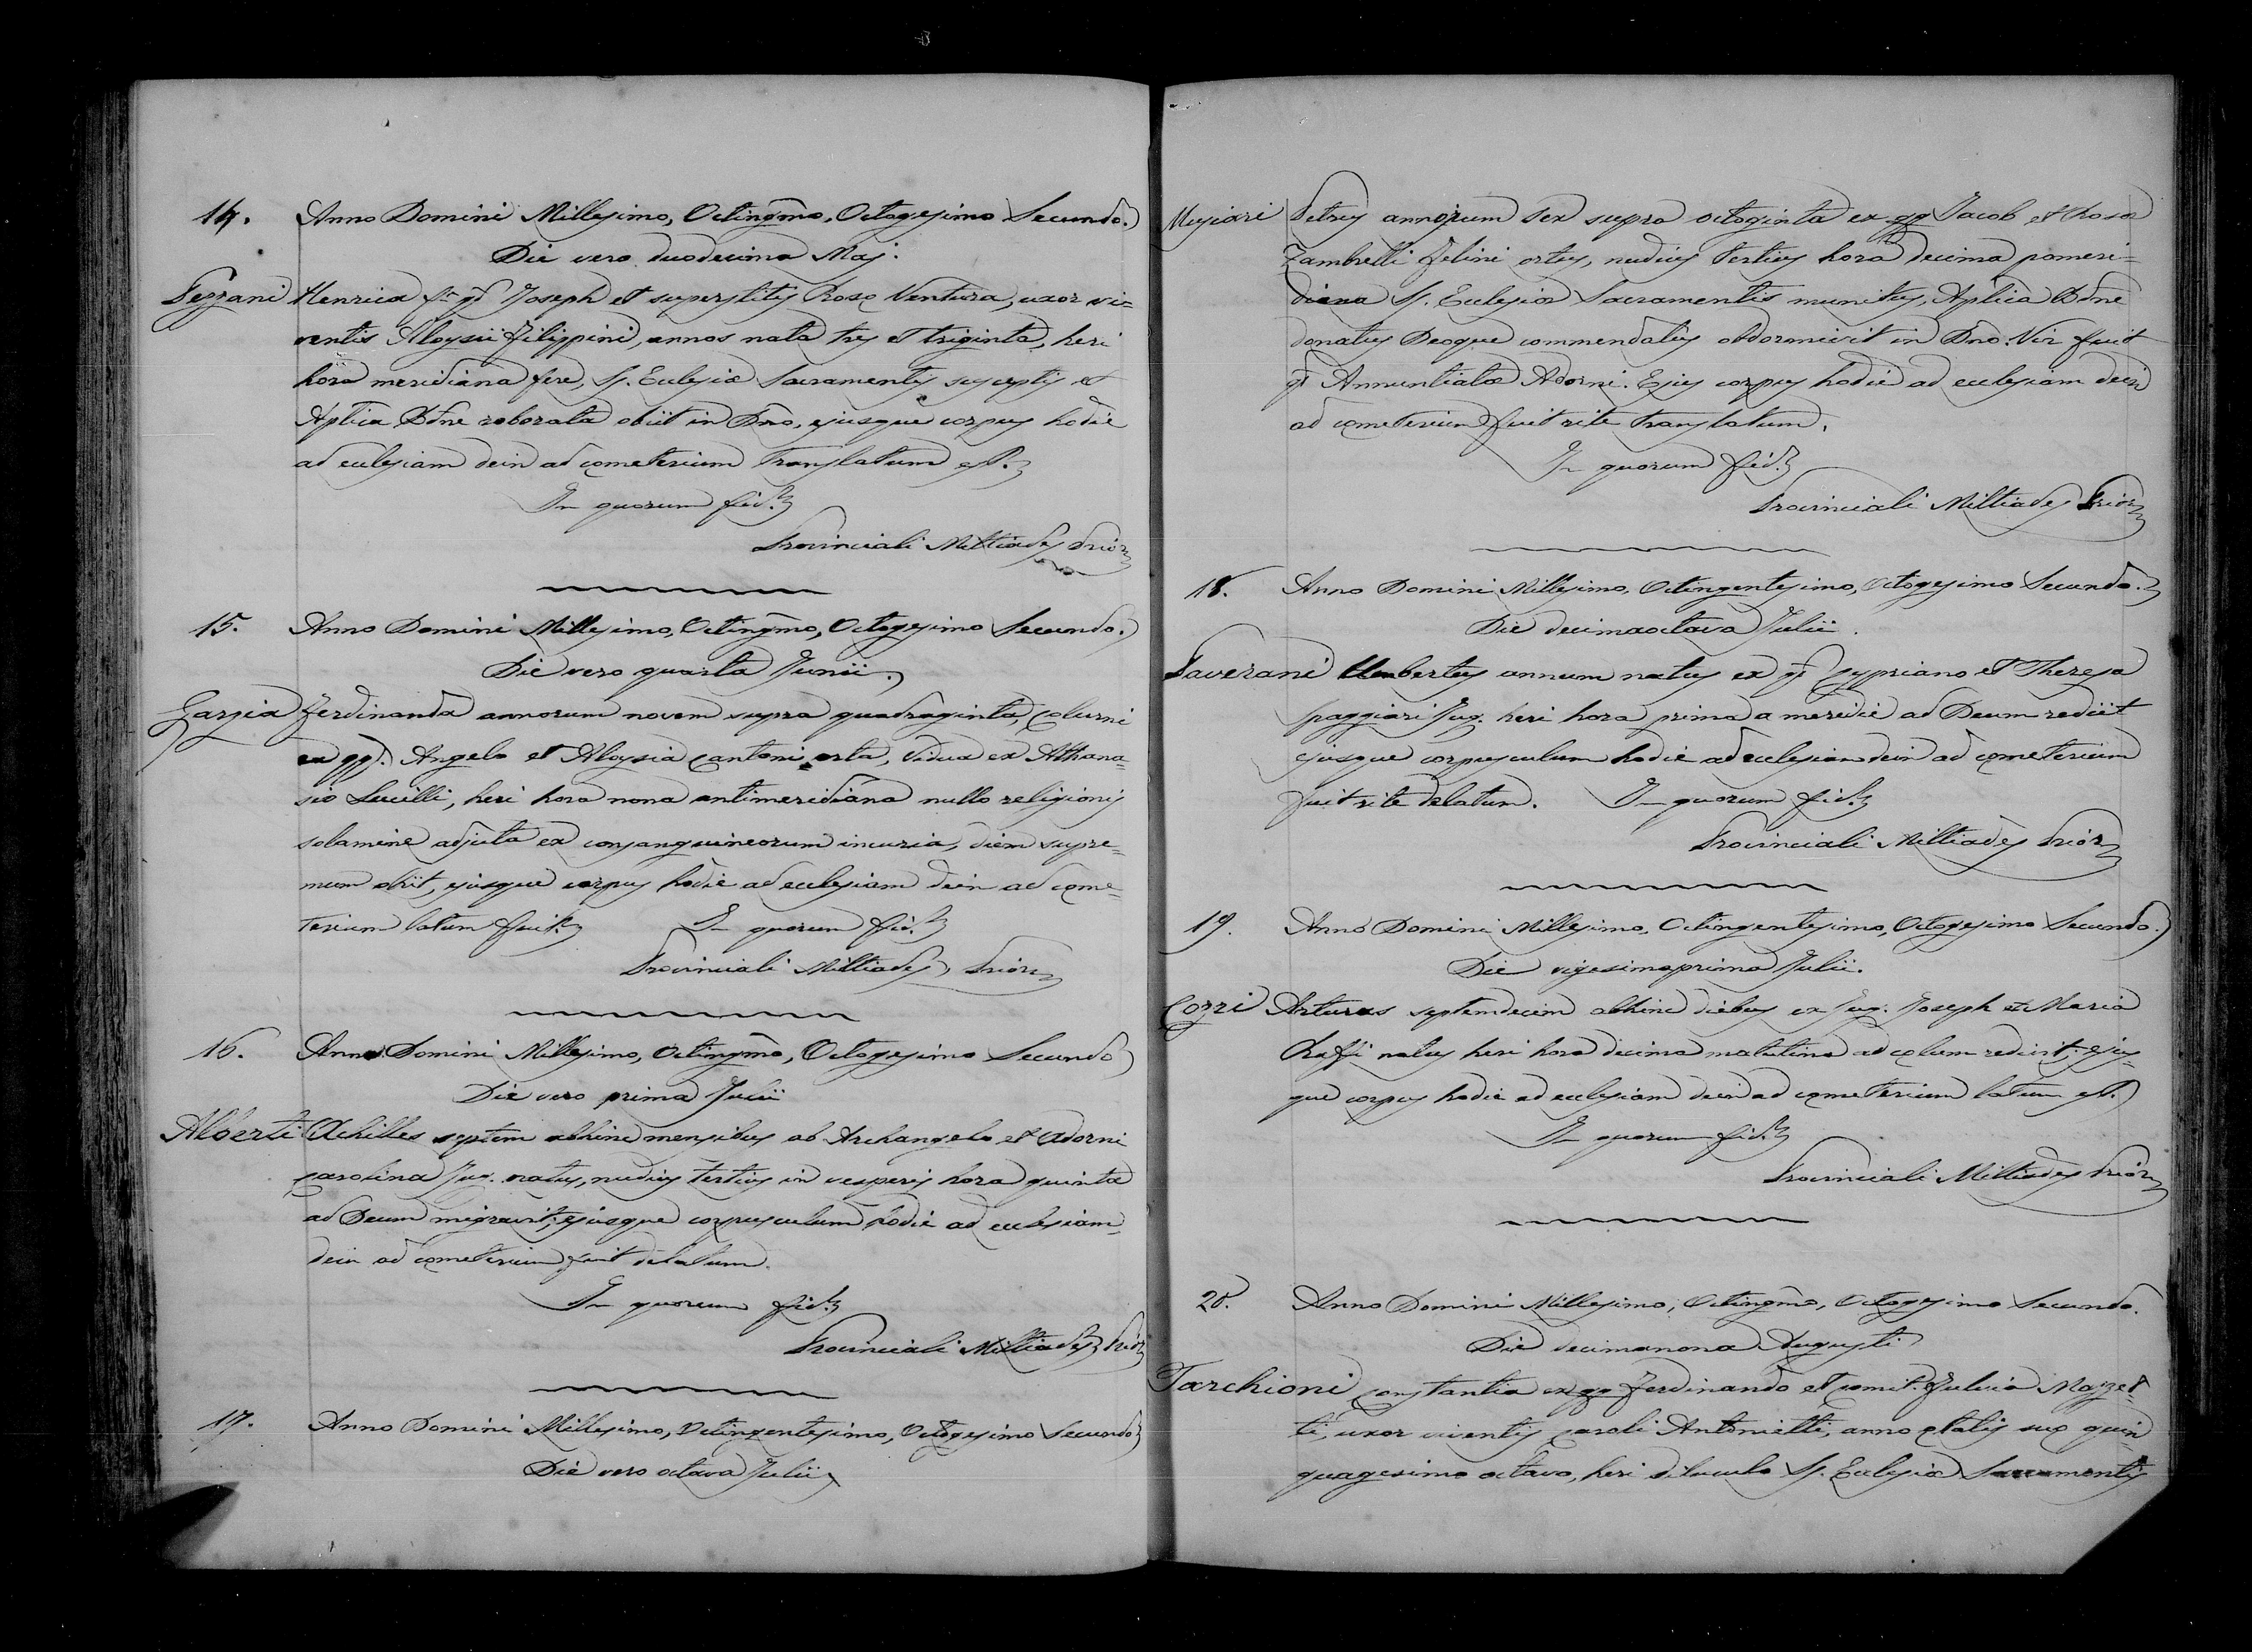 14. Anno Domini Millesimo, Octingmo, Octogesimo Secundo.
Die vero duodecima Maj.
Pezzani Henrica fa qd Joseph et superstitis Rosæ Ventura, uxor vi-
ventis Aloysii Filippini, annos nata tres et triginta, heri
hora meridiana fere, SS. Eclesiæ Sacramentis susceptis et
Aplica Bdne roborata obiit in Dno, ejusque corpus hodie
ad eclesiam dein ad cœmeterium translatum est.
In quorum fid.
Provinciali Miltiades Prior
15. Anno Domini Millesimo, Octingmo, Octogesimo Secundo.
Die vero quarta Junii.
Garzia Ferdinanda annorum novem supra quadraginta, Colurni
ex qq. Angelo et Aloysia Cantoni orta, vidua ex Athana-
sio Lucilli, heri hora nona antimeridiana nullo religionis
solamine adjuta ex consanguineorum incuria, diem supre-
mum obiit, ejusque corpus hodie ad eclesiam dein ad cœme-
terium latum fuit. In quorum fid.
Provinciali Miltiades Prior
16. Anno Domini Millesimo, Octingmo, Octogesimo Secundo
Die vero prima Julii
Alberti Achilles septem abhinc mensibus ab Archangelo et Adorni
Carolina Jug. natus, nudius tertius in vesperis hora quinta
ad Deum migravit; ejusque corpusculum hodie ad eclesiam
dein ad cœmeterium fuit delatum.
In quorum fid.
Provinciali Miltiades Prior
17. Anno Domini Millesimo, Octingentesimo, Octogesimo Secundo
Die vero octava Julii
Petrus annorum sex supra octoginta ex qq Jacob et Rosa
Zambrelli Felini ortus, nudius tertius hora decima pomeri-
diana SS. Eclesiæ Sacramentis munitus, Aplica Bdne
donatus Deoque commendatus obdormivit in Dno. Vir fuit
qd Annuntiatæ Adorni. Ejus corpus hodie ad eclesiam dein
ad cœmeterium fuit rite translatum.
In quorum fid.
Provinciali Miltiades Prior
18. Anno Domini Millesimo, Octingentesimo, Octogesimo Secundo.
Die decimaoctava Julii.
Saverani Umbertus annum natus ex qd Cypriano et Theresa
Spaggiari Jug. heri hora prima a meridie ad Deum rediit
ejusque corpusculum hodie ad eclesiam dein ad cœmeterium
fuit rite delatum. In quorum fid.
Provinciali Miltiades Prior
19. Anno Domini Millesimo, Octingentesimo, Octogesimo Secundo.
Die vigesimaprima Julii.
Cozzi Arturus septemdecim abhinc diebus ex Jug. Joseph et Maria
natus heri hora decima matutina ad cœlum redivit; ejus-
que corpus hodie ad eclesiam dein ad cœmeterium latum est.
In quorum fid.
Provinciali Miltiades Prior
20. Anno Domini Millesimo, Octingmo, Octogesimo Secundo.
Die decimanona Augusti
Tarchioni Constantia ex qq Ferdinando et comit. Fulvia Mazzet-
ti, uxor viventis Caroli Antonietti, anno ætatis suæ quin-
quagesimo octavo, heri diluculo SS. Eclesiæ Sacramentis